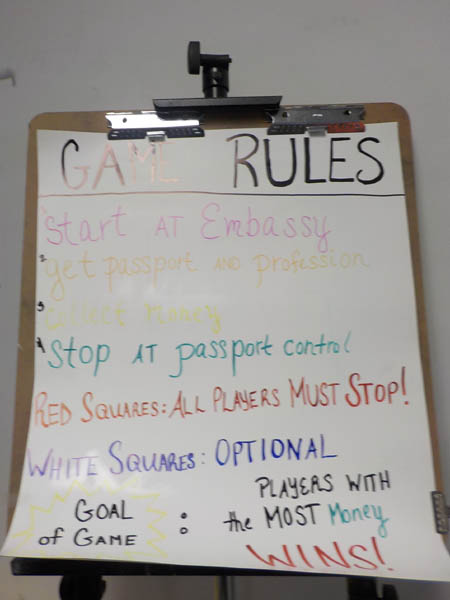 GAME RULES
1 Start AT Embassy
2 get passport AND profession
3 collect money
4 Stop AT passport control
RED SQUARES: ALL PLAYERS MUST STOP!
WHITE SQUARES: OPTIONAL
GOAL of GAME :
PLAYERS WITH
the MOST Money
WINS!